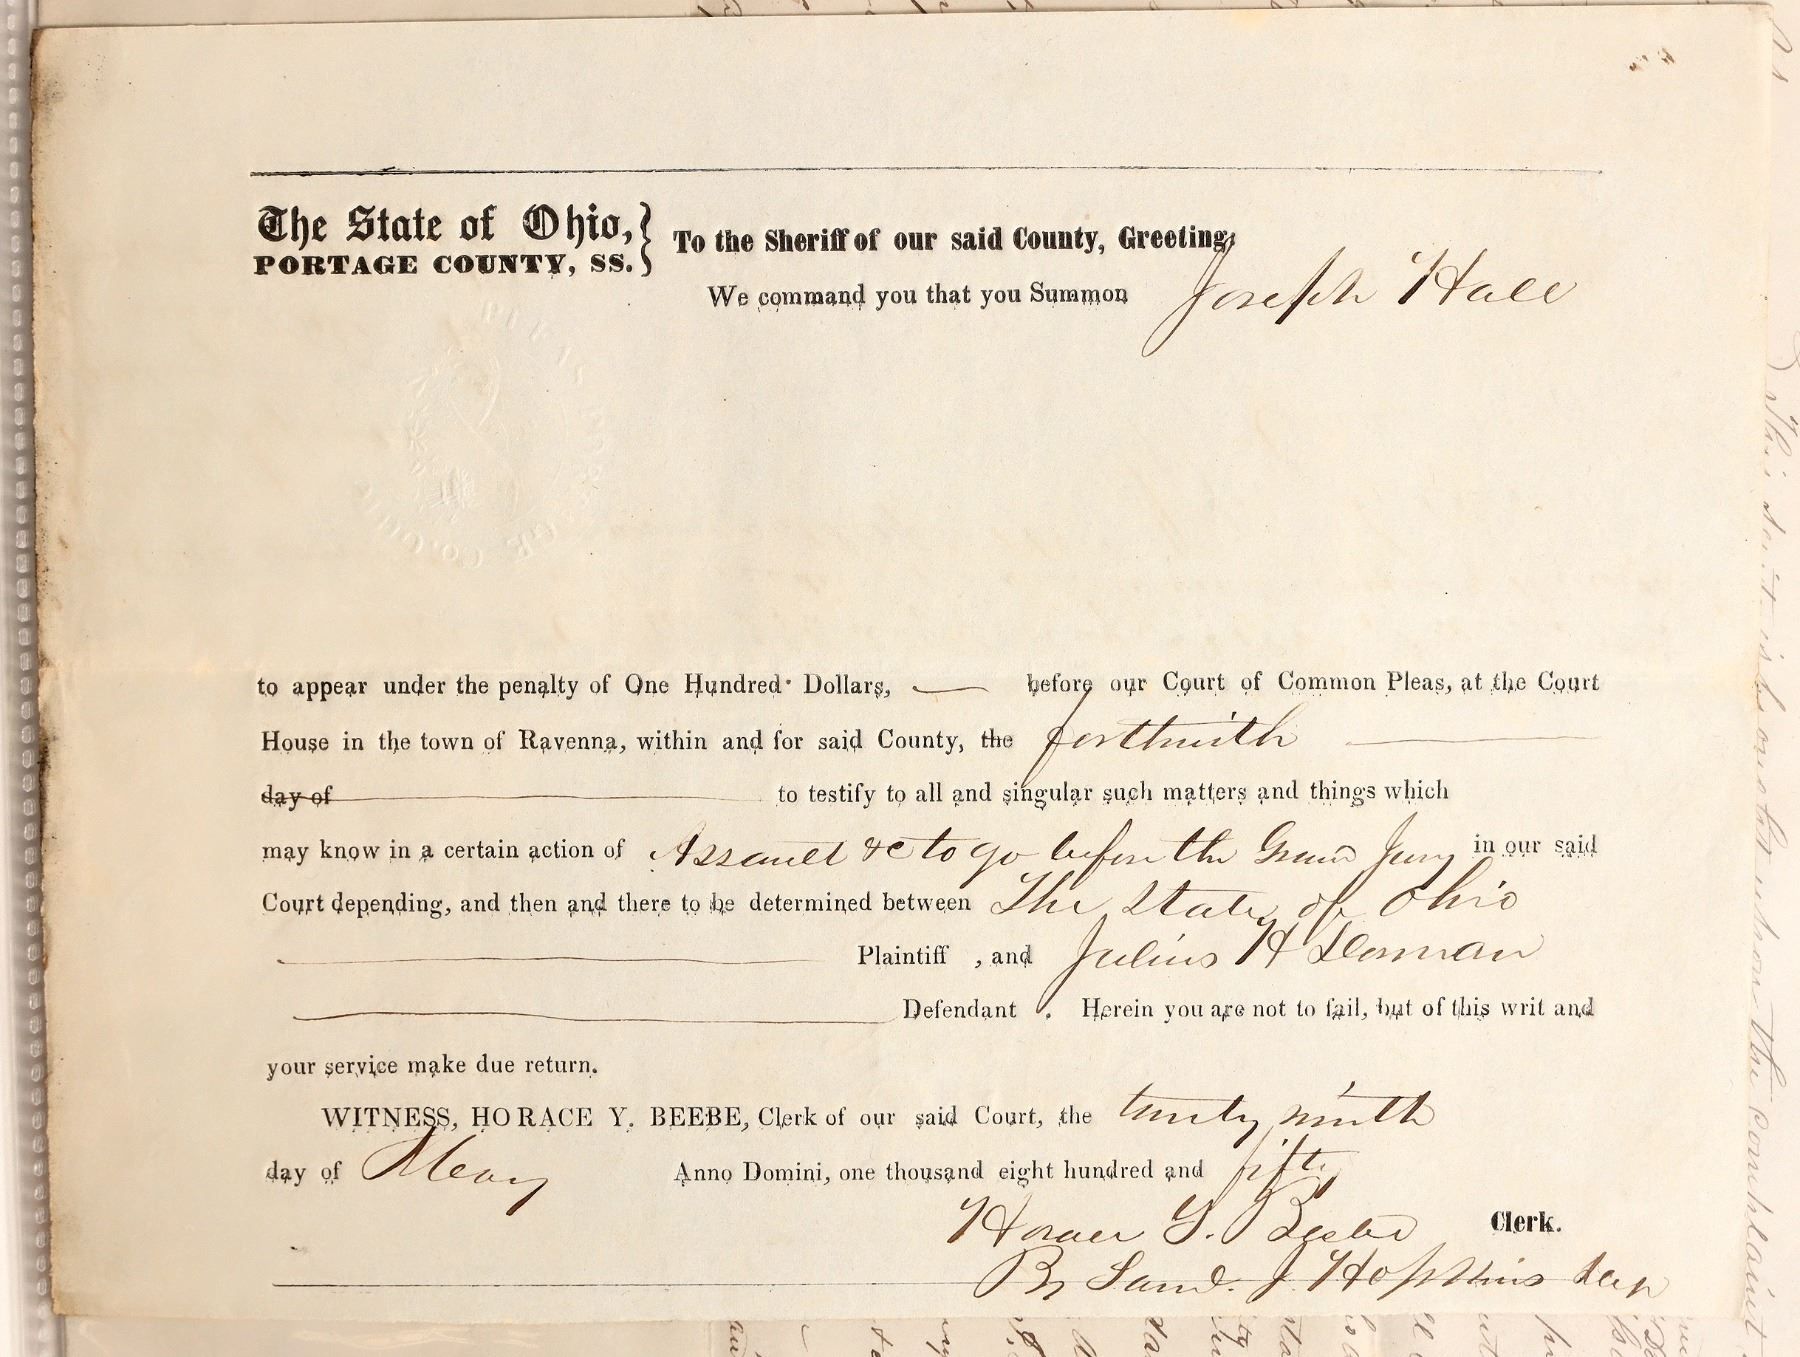 The State of Ohio,
PORTAGE COUNTY, SS.
To the Sheriff of our said County, Greeting;
We command you that you Summon Joseph Hall
to appear under the penalty of One Hundred Dollars, — before our Court of Common Pleas, at the Court
House in the town of Ravenna, within and for said County, the forthwith
day of to testify to all and singular such matters and things which
may know in a certain action of Assault &c to go before the Grand Jury in our said
Court depending, and then and there to be determined between The State of Ohio
Plaintiff , and Julius H
Defendant . Herein you are not to fail, but of this writ and
your service make due return.
WITNESS, HORACE Y. BEEBE, Clerk of our said Court, the twenty ninth
day of May Anno Domini, one thousand eight hundred and fifty
Horace Y. Beebe Clerk.
By Saml. J Hopkins dep
This writ is
the complaint